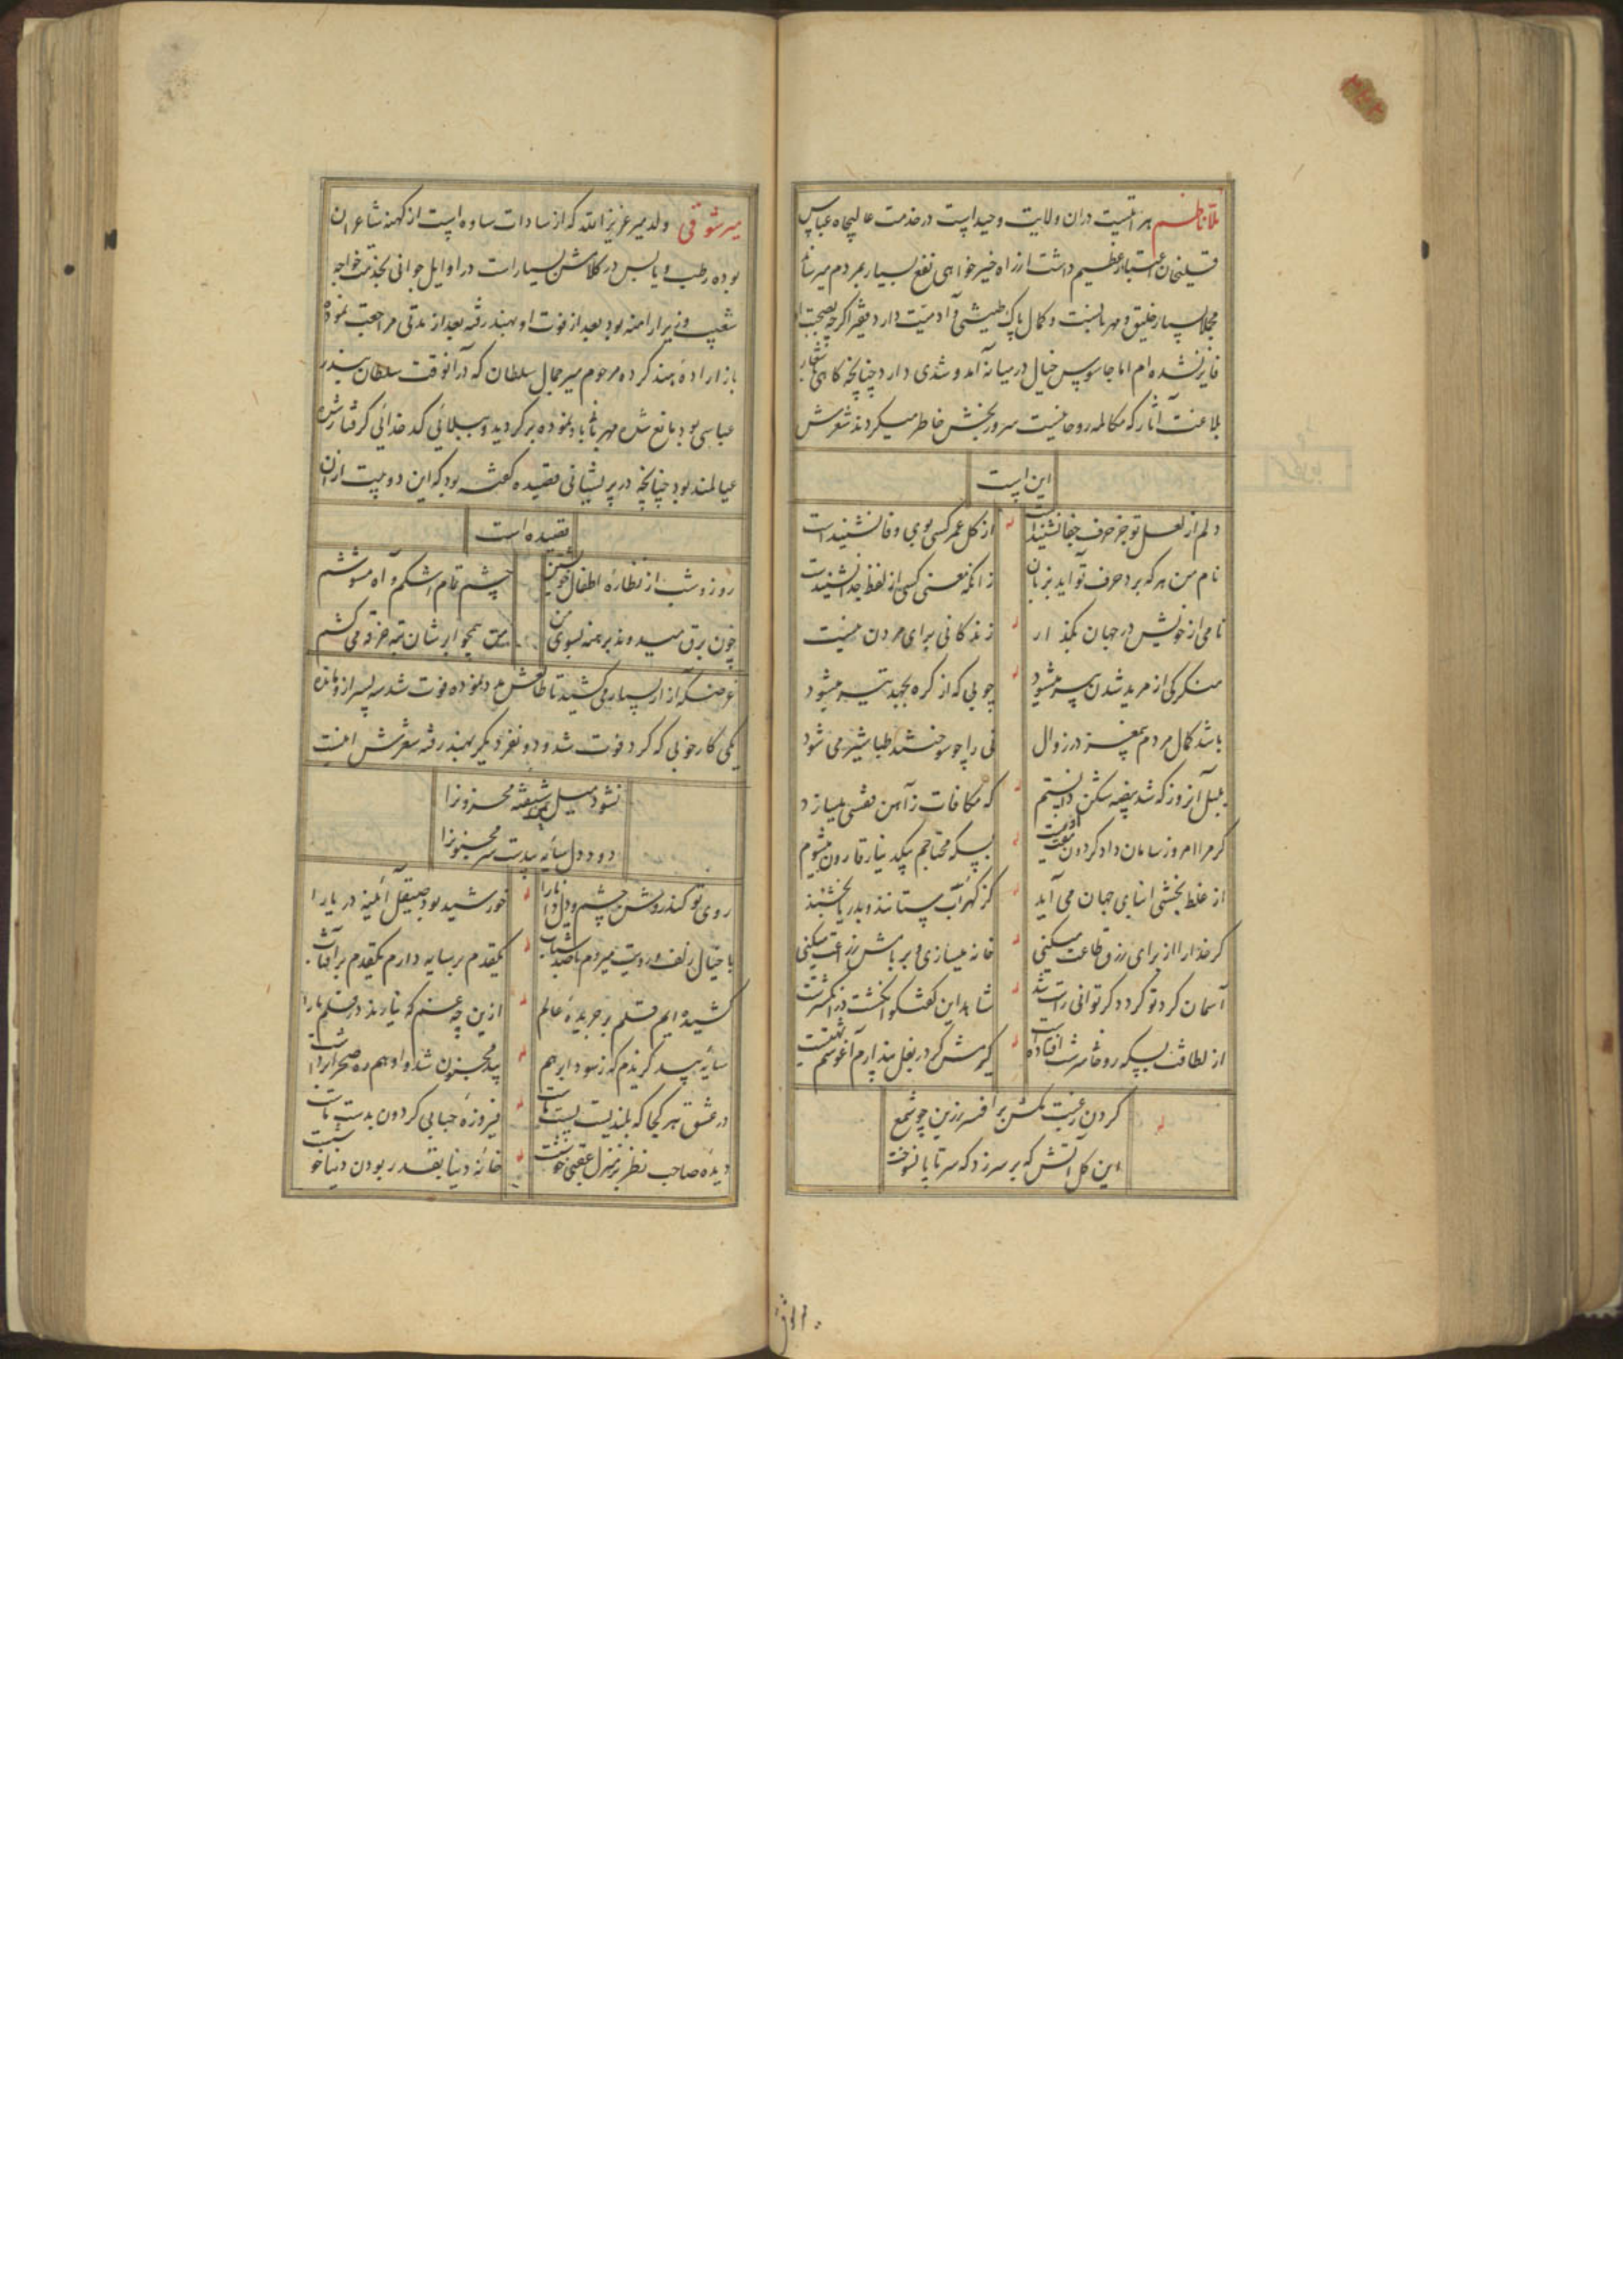 ملا ناظم هراتیست در آن ولایت وحید است در خدمت عالیجاه عباس
قلیخان اعتبار عظیم داشت از راه خیرخواهی نفع بسیار بمردم میرساند
مجملا بسیار خلیق و مهربانست و کمال پاک طینتی و آدمیت دارد فقیر اگرچه بصحبت او
فایز نشده ام اما جاسوس خیال در میانه آمد و شدی دارد چنانچه گاهی
بلاغت آثار که مکالمه روحانیست سرور بخش خاطر میگردند شعرش
این است
دلم از لعل تو جز حرف جفا نشنیدست از گل عمر کسی بوی وفا نشنیدست
نام من هر که برد حرف تو آید بزبان زانکه معنی کسی از لفظ جدا نشنیدست
نامی از خویش در جهان بگذار زندگانی برای مردن نیست
منکر کی از مرید شدن پیر میشود چوبی که از کره بجهد تیر میشود
باشد کمال مردم بیمغز در زوال نی را چو سوختند طباشیر می شود
بلبل آنروز که شد بیضه شکن دانستم که مکافات ز آهن قفسی میسازد
گر مرا امروز سامان داد گردون بسکه محتاجم بیک دینار قارون میشوم
از غلط بخشی ابنای جهان می آید کز گهر آب ستانند و بدریا بخشند
گر خدا را از برای رزق طاعت میکنی خانه میسازی و بر بامش زراعت میکنی
آسمان گرد تو گردد گر توانی راست شد شاهد این گفتگو انگشت در انگشترست
از لطافت بسکه روحانی سرشت افتاده است گیرمش گر در بغل پندارم آغوشم تهیست
گردن رغبت مکش بر افسر زرین چو شمع
این گل آتش که بر سر زد که سر تا پا نسوخت
میر شوقی ولد میر عزیزالله که از سادات ساوه است از کهنه شاعران
بوده رطب و یابس در کلامش بسیار است در اوایل جوانی بخدمت خواجه
شعیب وزیر ارامنه بود بعد از فوت او بهند رفته بعد از مدتی مراجعت نموده
باز اراده هند کرده مرحوم میر جمال سلطان که در آنوقت سلطان بندر
عباسی بود مانع شده مهربانیها باو نموده برگردید و ببلای کدخدائی گرفتار شده
عیالمند بود چنانچه در پریشانی قصیده گفته بود که این دو بیت از آن
قصیده است
روز و شب از نظاره اطفال خویشتن چشم تمام اشکم و آه مشوشم
چون برق میدوند برهنه بسوی من من همچو ابر شان بته خرقه می کشم
غرضکه آزار بسیاری کشید تا طالعش مدد نموده فوت شد سه پسر از و مانده
یکی کار خوبی که کرد فوت شد و دو نفر دیگر بهند رفته شعرش اینست
نشود میل شیفته محزونرا
دود دل سایه بیدست سر مجنونرا
روی تو کند روشن چشم و دل دانا را خورشید بود صیقل آئینه دریا را
با خیال زلف و رویت میروم با صد شتاب یکقدم بر سایه دارم یکقدم بر آفتاب
کشیده ایم قلم بر جریده عالم ازین چه غم که نیارند در قلم ما را
سایه بید گزیدم که ز سودا برهم بید مجنون شد و او هم ره صحرا برداشت
در عشق هر کجا که بلندیست پست ماست فیروزه حبابی گردون بدست ماست
دیده صاحب نظر بر منزل عقبی خوشست خانه دنیا بقدر بودن دنیا خوشست